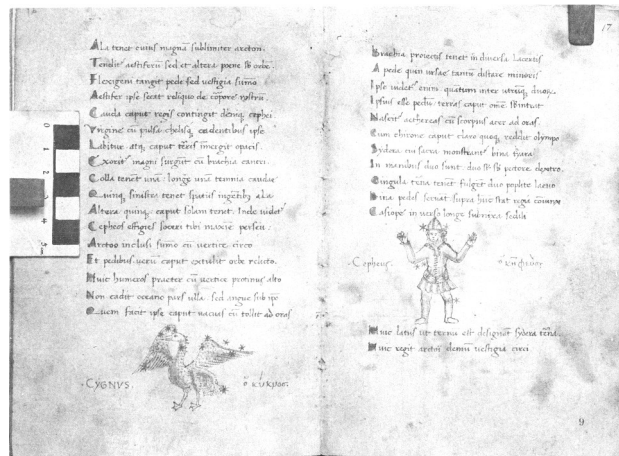 Ala tenet cuius magnā sublimiter arcton.
Tendit aestiferū sed et altera poene sb orbe.
Flexigenū tangit pede sed vestigia sūmo
Aestifer ipse secat reliquo de corpore rostrū
Cauda caput regi contingit denq; cephei
Virgine cū pulsa chelisq; cadentibus ipse
Labitur atq; caput īmergit opacis.
Exorit magni surgūt cū brachia cancri.
Colla tenet una longe una
Quinq; sinistra tenet spatiis ingētib; ala
Altera quinq; caput solam tenet. Inde videt
Cepheos effigies soceri tibi maxime perseu
Arctoo inclusi sūmo cū vertice circo
Et pedibus caput extulit orbe relicto.
Huic humeros praeter cū vertice protinus alto
Non cadit oceano pars ulla. sed angue sub ipso
Quem facit ipse caput vacuas cū tollit ad oras
CYGNVS. ὁ κύκνος.
17
Brachia proiectis tenet in diversa lacertis
A pede quen ursae tantū distare minoris
Ipse videt enim quantum inter utrūq; duos.
Ipsius esse pedū. terras caput omē sbintrat
Nascit aethereas cū scorpius acer ad oras.
Cum chirone caput claro quoq; reddit olympo
Sydera cui sacra monstrant bina tiara
In manibus duo sunt. duo st sb pectore dextro.
Cingula trina tenet fulget duo poplite laevo
Bina pedis servat. supra hūc stat regia coniunx
Casiope in verso longe subnixa sedili
Cepheus. ὁ κηφεύς
Huic latus ut ternū est designat sydera tēna.
Huic regit arcton demū vestigia circi.
9
0 1 2 3 4 5